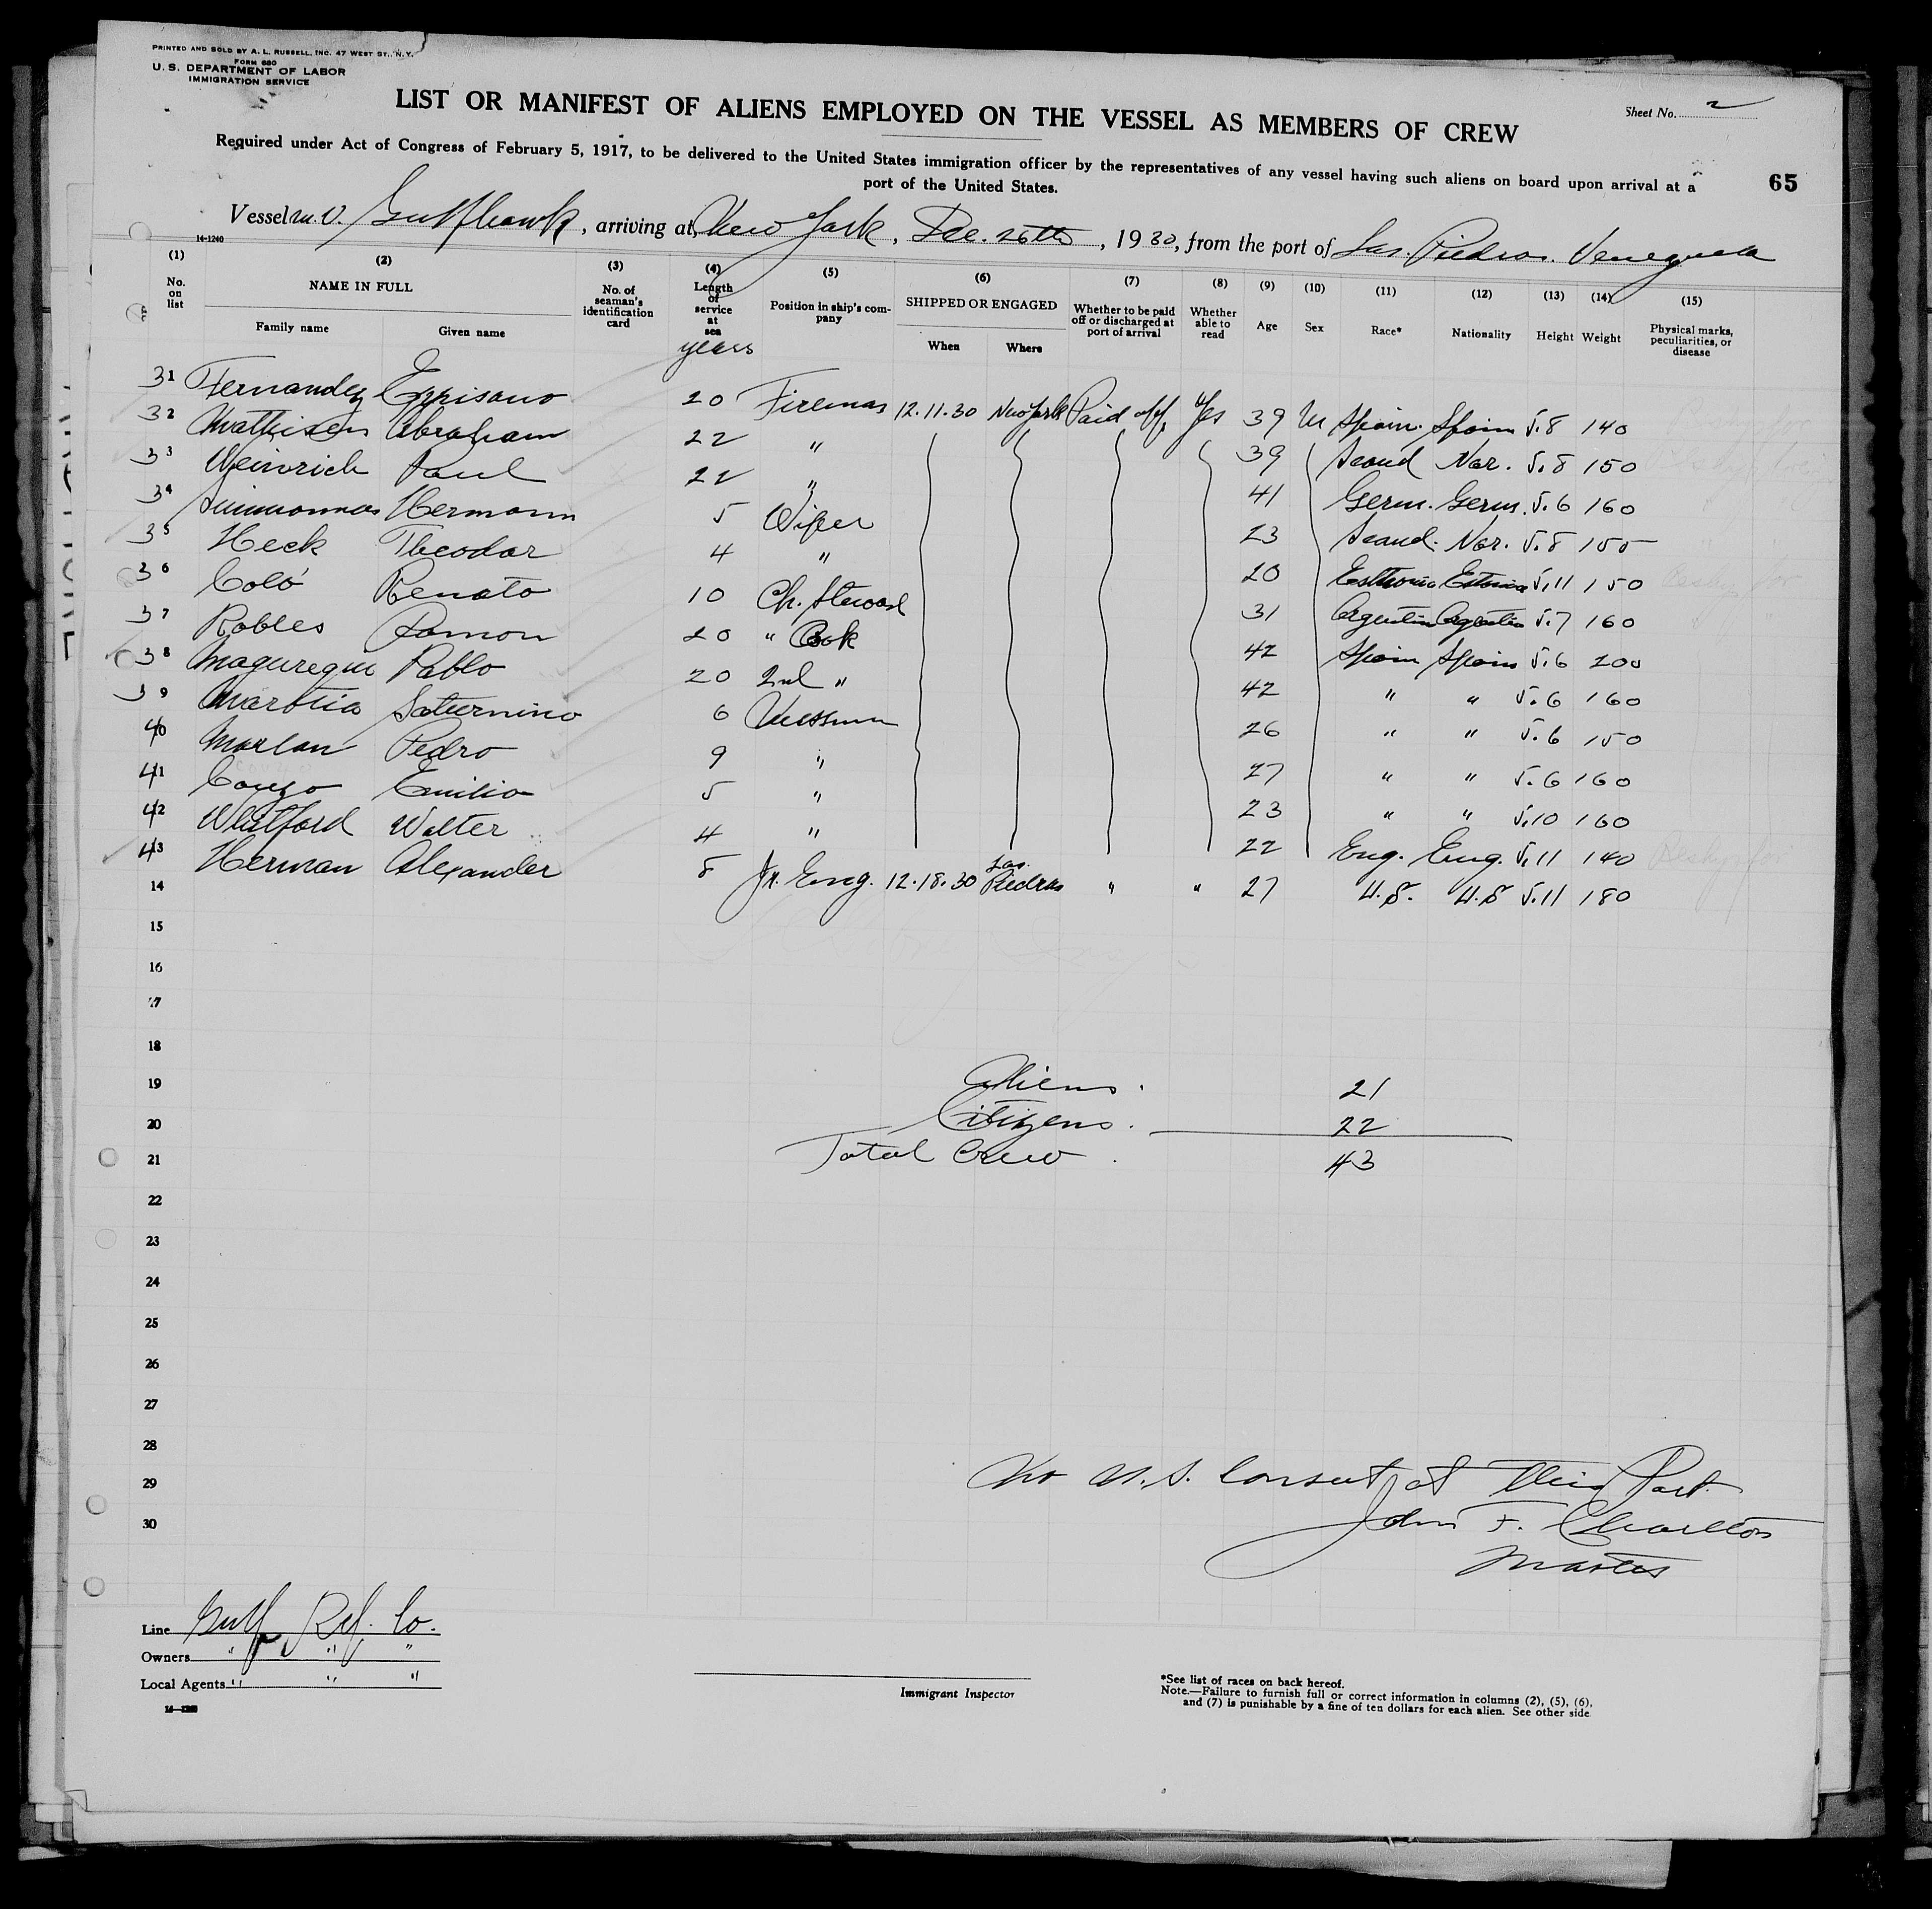 PRINTED AND SOLD BY A. L. RUSSELL, INC. 47 WEST ST., N.Y.
FORM 680
U. S. DEPARTMENT OF LABOR
IMMIGRATION SERVICE
Sheet No. 2
LIST OR MANIFEST OF ALIENS EMPLOYED ON THE VESSEL AS MEMBERS OF CREW
Required under Act of Congress of February 5, 1917, to be delivered to the United States immigration officer by the representatives of any vessel having such aliens on board upon arrival at a
port of the United States.
65
Vessel M.V. Gulfhawk, arriving at New York, Dec. 26th, 1930, from the port of Las Piedras. Venezuela
14-1240
(1) (2) (3) (4) (5) (6) (7) (8) (9) (10) (11) (12) (13) (14) (15)
No. on list NAME IN FULL Family name Given name No. of seaman's identification card Length of service at sea years Position in ship's company SHIPPED OR ENGAGED When Where Whether to be paid off or discharged at port of arrival Whether able to read Age Sex Race* Nationality Height Weight Physical marks, peculiarities, or disease
31 Fernandez 20 Fireman 12.11.30 New York Paid off Yes 39 M Spain. Spain 5.8 140
32 Mathisen Abraham 22 " 39 Scand Nor. 5.8 150
33 Weinrich Paul 22 " 41 Germ. Germ. 5.6 160
34 Hermann 5 Wiper 23 Scand. Nor. 5.8 155
35 Heck Theodor 4 " 20 Esthonia Estonia 5.11 150
36 Coló Renato 10 Ch. Steward 31 Argentin Argentin 5.7 160
37 Robles Ramon 20 " Cook 42 Spain Spain 5.6 200
38 Maguregui Pablo 20 2nd " 42 " " 5.6 160
39 Saturnino 6 Messman 26 " " 5.6 150
40 Marlan Pedro 9 " 27 " " 5.6 160
41 Couzo Emilio 5 " 23 " " 5.10 160
42 Whitford Walter 4 " 22 Eng. Eng. 5.11 140
43 Herman Alexander 8 Jr. Eng. 12.18.30 Las Piedras " " 27 U.S. U.S 5.11 180
14
15
16
17
18
19 Aliens. 21
20 Citizens. 22
21 Total Crew. 43
22
23
24
25
26
27
28
29 No U.S. Consul at this Port.
30 John F. Charlton
Master
Line Gulf Ref. Co.
Owners " " "
Local Agents " " "
14-1240
Immigrant Inspector
*See list of races on back hereof.
Note.—Failure to furnish full or correct information in columns (2), (5), (6),
and (7) is punishable by a fine of ten dollars for each alien. See other side